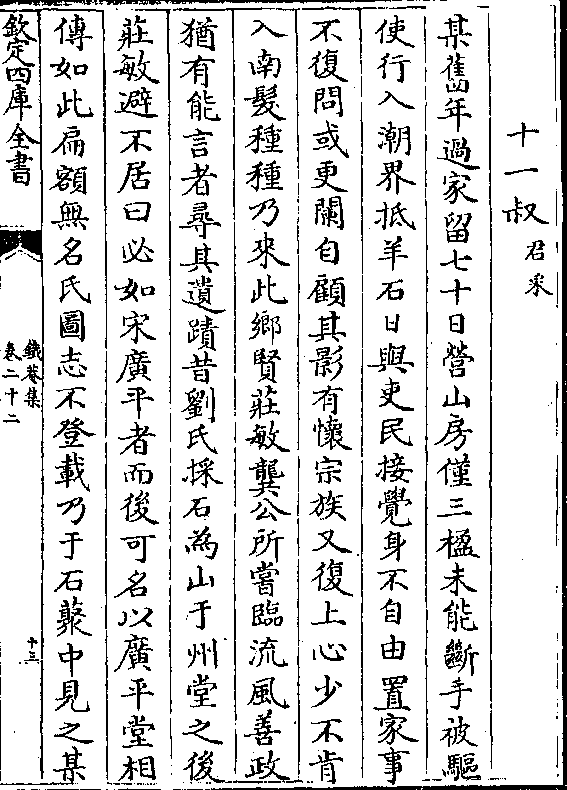 十一叔君采
某舊年過家留七十日營山房僅三楹未能斷手被驅
使行入潮界抵羊石日與吏民接覺身不自由置家事
不復問或更闌自顧其影有懷宗族又復上心少不肯
入南髮種種乃來此鄉賢莊敏龔公所嘗臨流風善政
猶有能言者尋其遺蹟昔劉氏採石為山于州堂之後
莊敏避不居曰必如宋廣平者而後可名以廣平堂相
傳如此扁額無名氏圖志不登載乃于石藂中見之某
欽定四庫全書
鐵菴集
卷二十二
十三